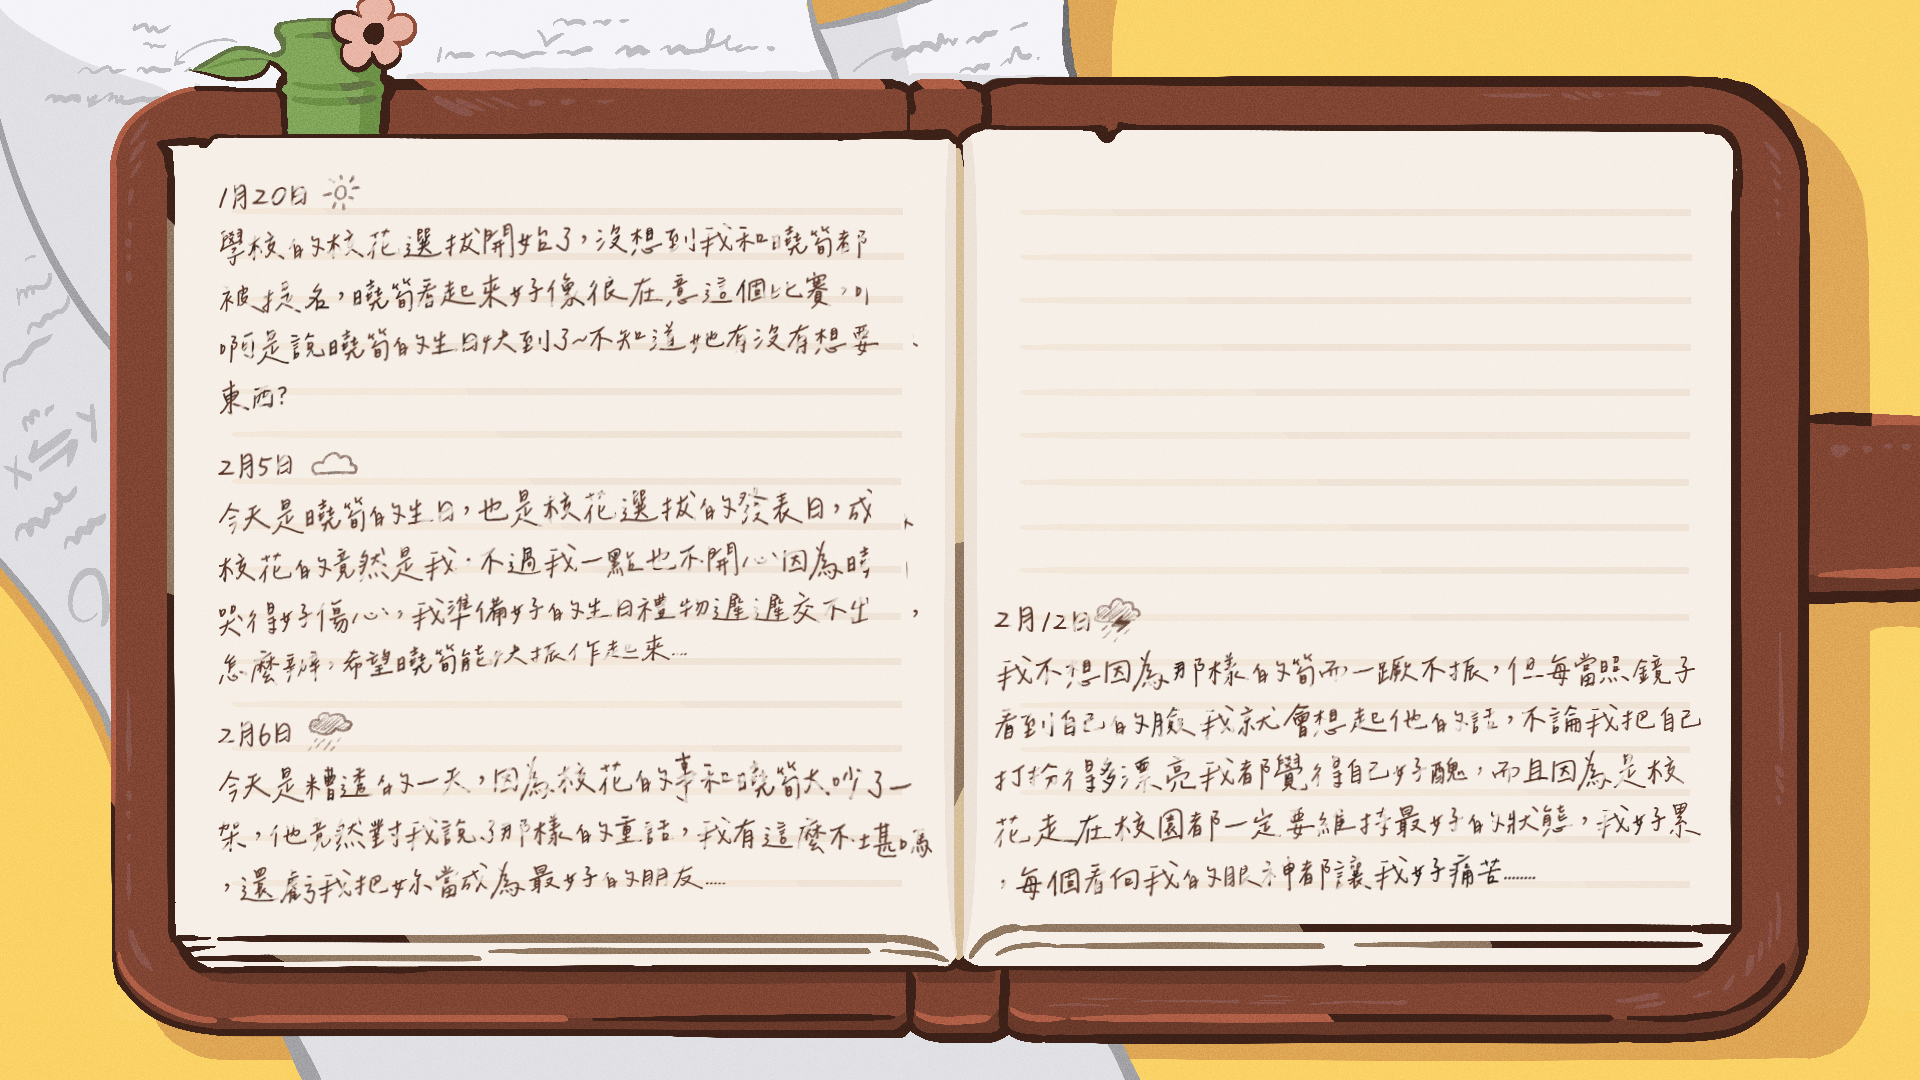 1月20日
學校的校花選拔開始了，沒想到我和曉筍都
被提名，曉筍看起來好像很在意這個比賽，
啊是說曉筍的生日快到了~不知道她有沒有想要
東西?
2月5日
今天是曉筍的生日，也是校花選拔的發表日，成
校花的竟然是我，不過我一點也不開心因為
哭得好傷心，我準備好的生日禮物遲遲交不出
怎麼辦，希望曉筍能快振作起來...
2月6日
今天是糟透的一天，因為校花的事和曉筍大吵了一
架，他竟然對我說了那樣的重話，我有這麼不堪嗎
，還虧我把妳當成為最好的朋友.....
2月12日
我不想因為那樣的筍而一蹶不振，但每當照鏡子
看到自己的臉我就會想起他的話，不論我把自己
打扮得多漂亮我都覺得自己好醜，而且因為是校
花走在校園都一定要維持最好的狀態，我好累
，每個看向我的眼神都讓我好痛苦........